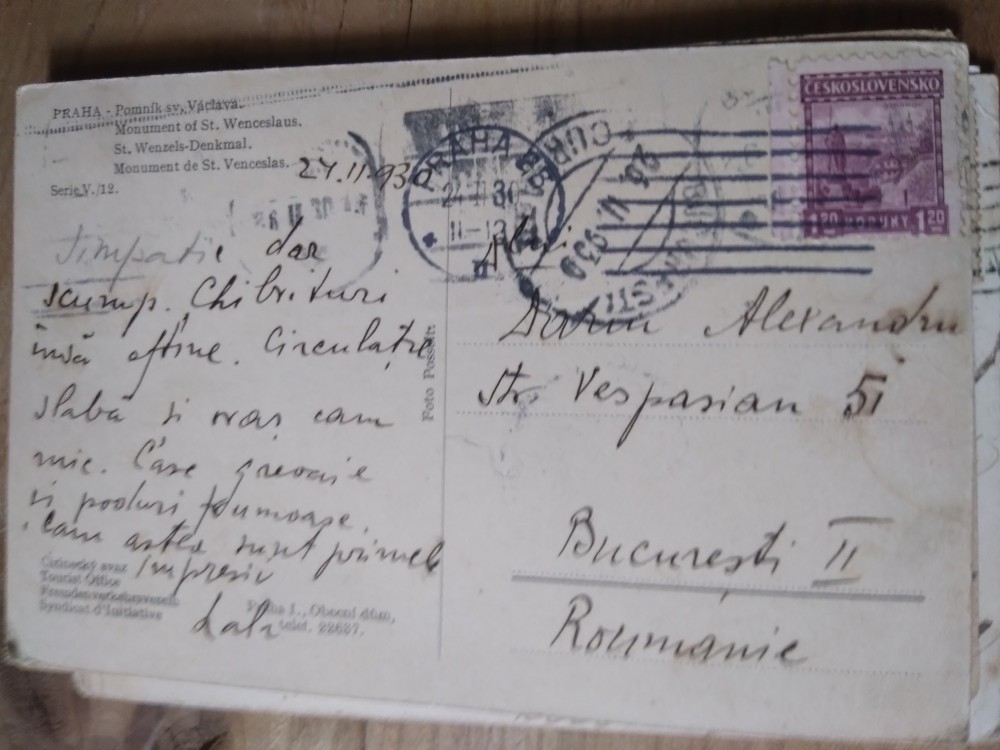 PRAHA - Pomník sv. Václava.
Monument of St. Wenceslaus.
St. Wenzels-Denkmal.
Monument de St. Venceslas.
Serie V./12.
24.II.930
Simpatic dar
scump. Chibrituri
însă eftine. Circulație
slabă și oraș cam
mic. Case greoaie
și poduri frumoase.
Cam astea sunt primele
impresii
Lala
Cizinecký svaz
Tourist Office
Fremdenverkehrsverein
Syndicat d'Initiative
Praha I., Obecní dům,
telef. 22627.
Foto Posselt
PRAHA
24 II 30
26 II 930
ČESKOSLOVENSKO
1.20 KORUNY 1.20
Alexandru
Str. Vespasian 51
București II
Roumanie